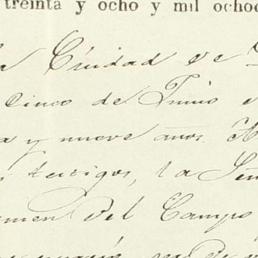 treinta y ocho y mil ochoc
a Ciudad de
Cinco de Junio
a y nueve anos
s testigos, la Señ
rmen del Campo